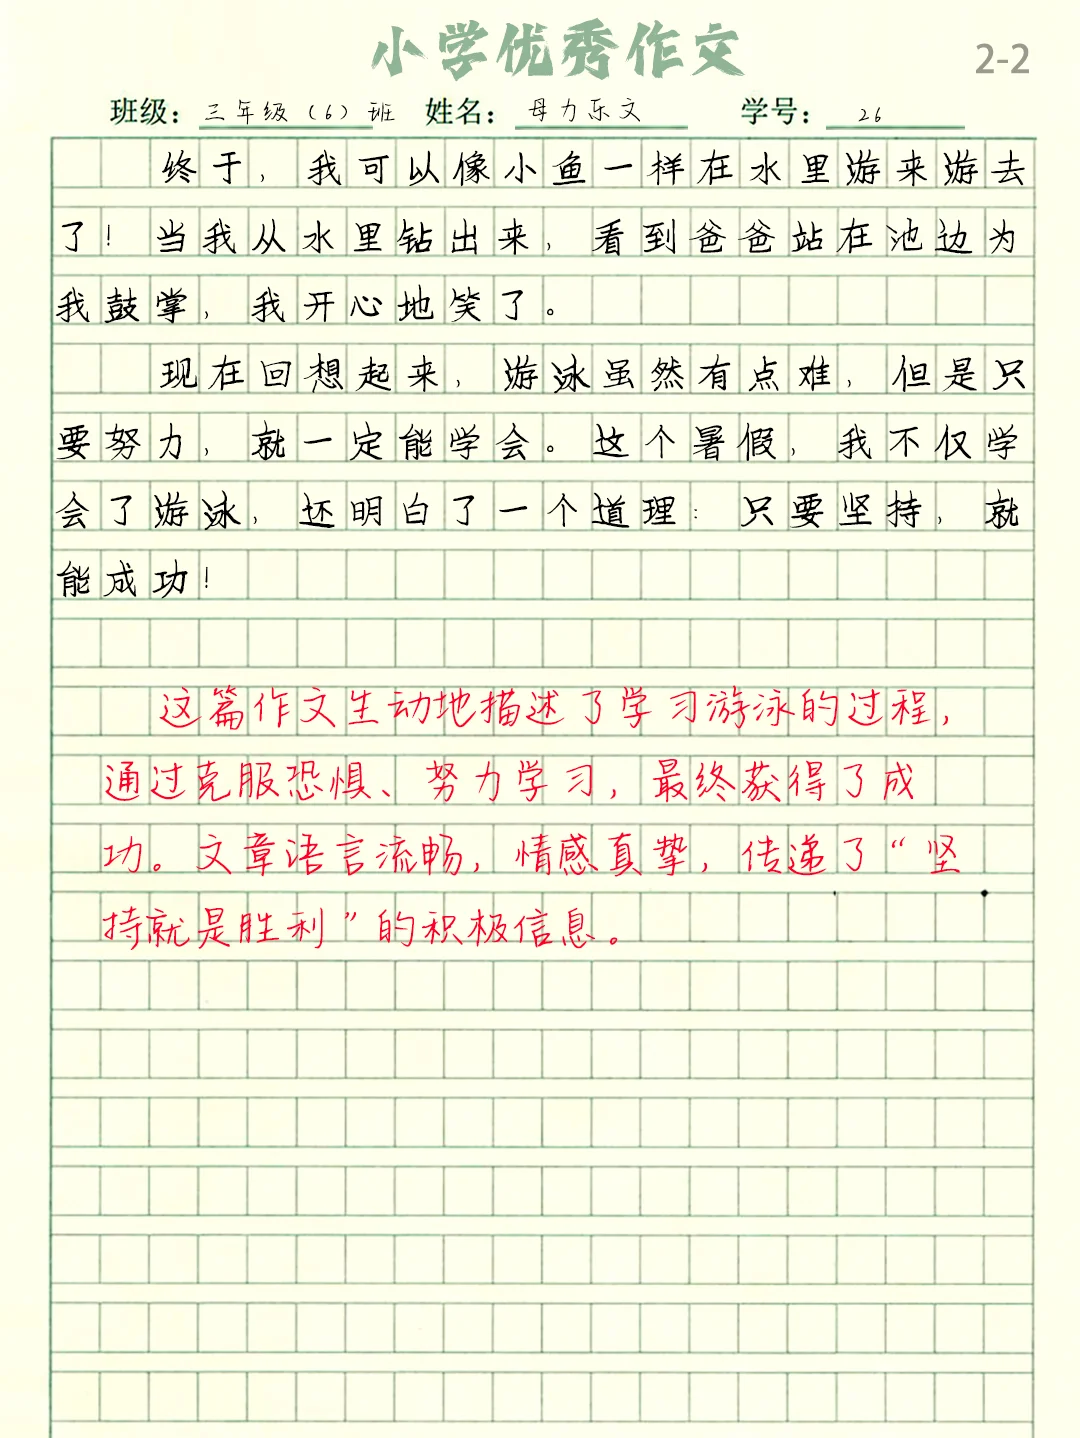 小学优秀作文
2-2
班级：三年级（6）班 姓名：母力乐文 学号：26
终于，我可以像小鱼一样在水里游来游去
了！当我从水里钻出来，看到爸爸站在池边为
我鼓掌，我开心地笑了。
现在回想起来，游泳虽然有点难，但是只
要努力，就一定能学会。这个暑假，我不仅学
会了游泳，还明白了一个道理：只要坚持，就
能成功！
这篇作文生动地描述了学习游泳的过程，
通过克服恐惧、努力学习，最终获得了成
功。文章语言流畅，情感真挚，传递了“坚
持就是胜利”的积极信息。